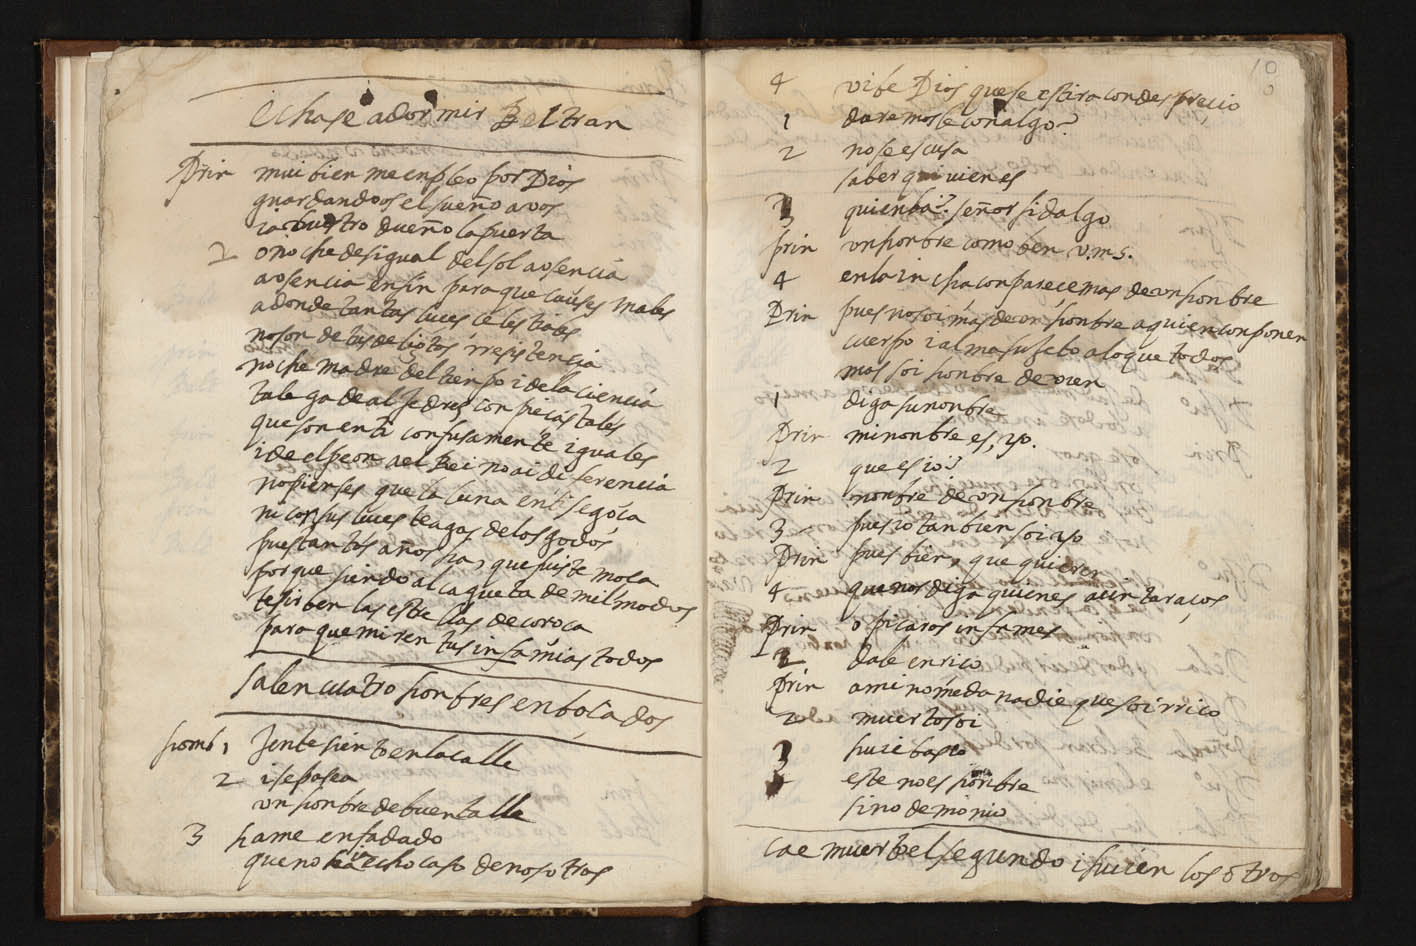 echase a dormir Beltran
Prin mui bien me enpleo por Dios
guardandoos el sueño a vos
i a buestro dueño la puerta
2 o noche desigual del sol aosencia
aosencia en fin para que causes males
adonde tantas luces celestiales
no son de tus delitos rresistencia
noche madre del tienpo i de la ciencia
talega de aljedres con pieças tales
que son en ti confusamente iguales
i de el peon a el Rei no ai diferencia
no pienses que la luna en ti se goça
ni con sus luces te agas de los godos
pues tantos años ha, que fuiste moça
porque siendo alcagueta de mil modos
te sirben las estrellas de coroça
para que miren tus infamias todos
salen cuatro honbres enboçados
homb 1 Jente siento en la calle
2 i se pasea
un honbre de buen talle
3 hame enfadado
que no ha echo caso de nosotros
10
4 vibe Dios que se estira con desprecio
1 daremosle con algo?
2 no se escusa
saber quien es
3 quien ba? señor hidalgo
Prin un honbre como ben v.ms.
4 en la hincha con parece mas de un honbre
Prin pues no soi mas de un honbre a quien conponen
cuerpo i alma sujeto a lo que todos
mas soi honbre de vien
1 diga su nonbre
Prin mi nonbre es, yo.
2 que es io?
Prin nonbre de un honbre
3 pues io tanbien soi yo
Prin pues bien, que quieren
4 que nos diga quien es
Prin o picaros infames
2 dale enrico
Prin a mi no me da nadie que soi rrico
2 muerto soi
3 huie basco
4 este no es honbre
sino demonio
cae muerto el segundo i huien los otros